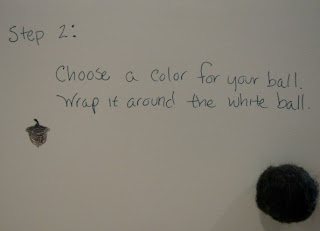 Step 2:
Choose a color for your ball.
Wrap it around the white ball.